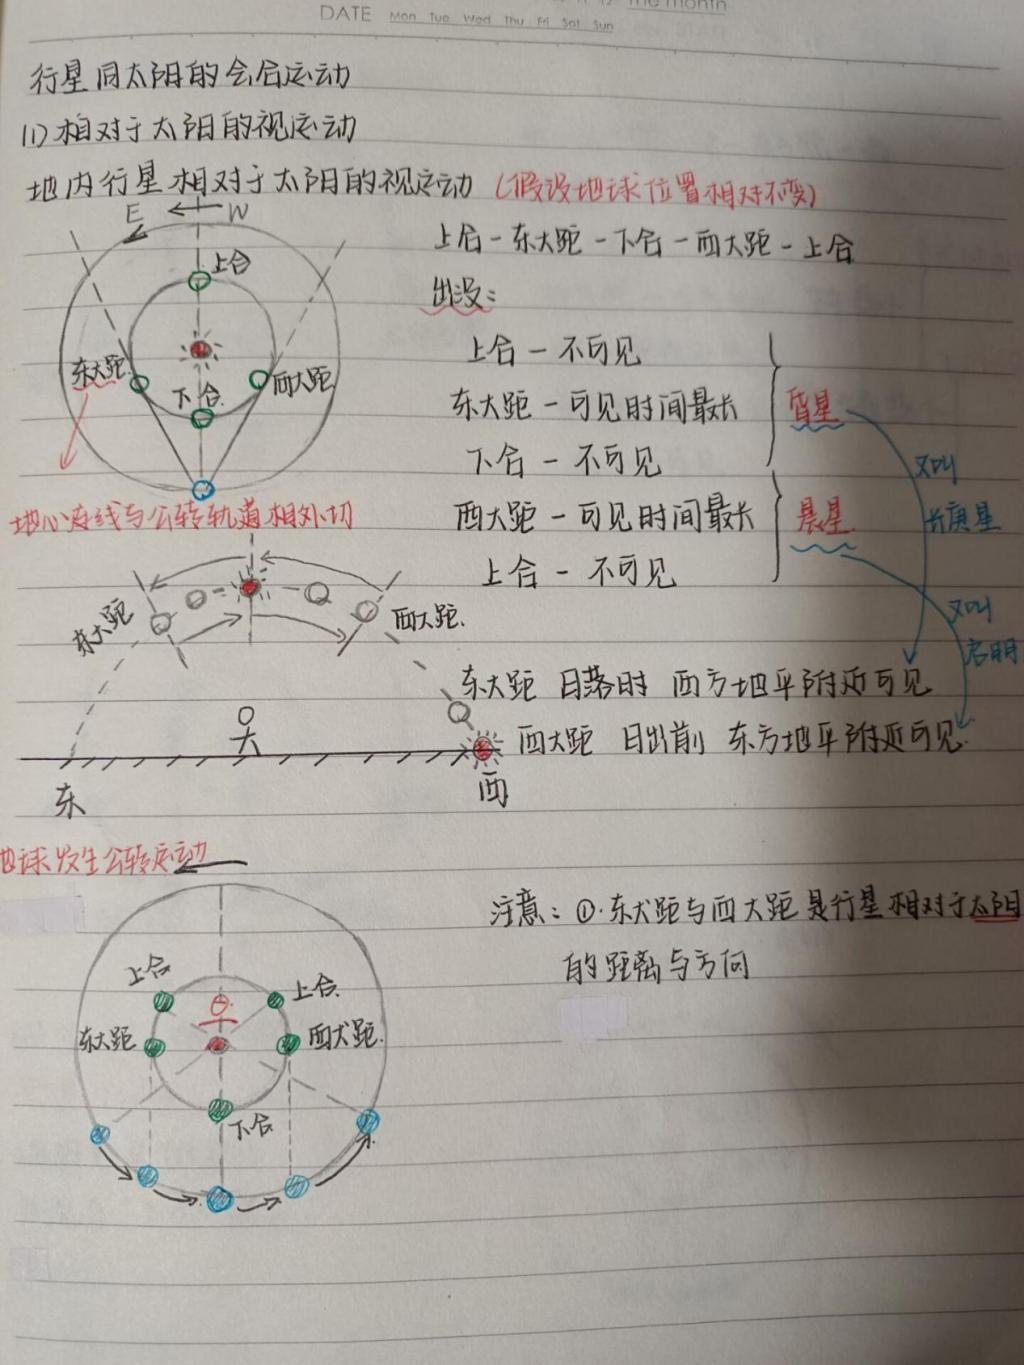 The Month
DATE Mon Tue Wed Thu Fri Sat Sun
行星同太阳的会合运动
(1)相对于太阳的视运动
地内行星相对于太阳的视运动(假设地球位置相对不变)
E W
上合
东大距
下合
西大距
地心连线与公转轨道相外切
上合-东大距-下合-西大距-上合
出没:
上合-不可见
东大距-可见时间最长
下合-不可见
西大距-可见时间最长
上合-不可见
昏星
晨星
又叫
长庚星
又叫
启明
东大距
西大距.
东大距 日落时 西方地平附近可见
西大距 日出前 东方地平附近可见.
东
西
地球发生公转运动
上合
上合.
θ
东大距
西大距.
下合
注意:①.东大距与西大距是行星相对于太阳
的距离与方向